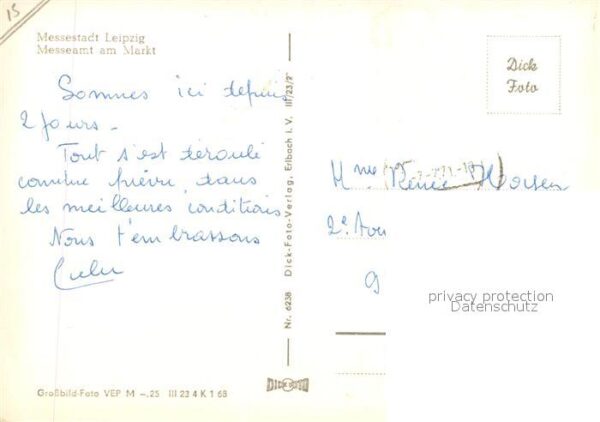 15
Messestadt Leipzig
Messeamt am Markt
Sommes ici depuis
2 jours.
Tout s'est déroulé
comme prévu, dans
les meilleures conditions
Nous t'embrassons
Nr. 6238 Dick-Foto-Verlag, Erlbach i. V. III/23/2
Dick
Foto
Mme Renée
2e
9
privacy protection
Datenschutz
DICK FOTO
Großbild-Foto VEP M -.25 III 23 4 K 1 68